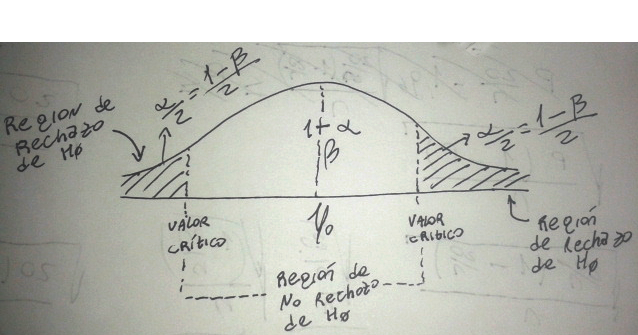 Region de
Rechazo
de Hø
α/2 = 1-β/2
1+α
β
α/2 = 1-β/2
VALOR
CRÍTICO
VALOR
CRITICO
Región
de Rechazo
de Hø
Región de
No Rechazo
de Hø